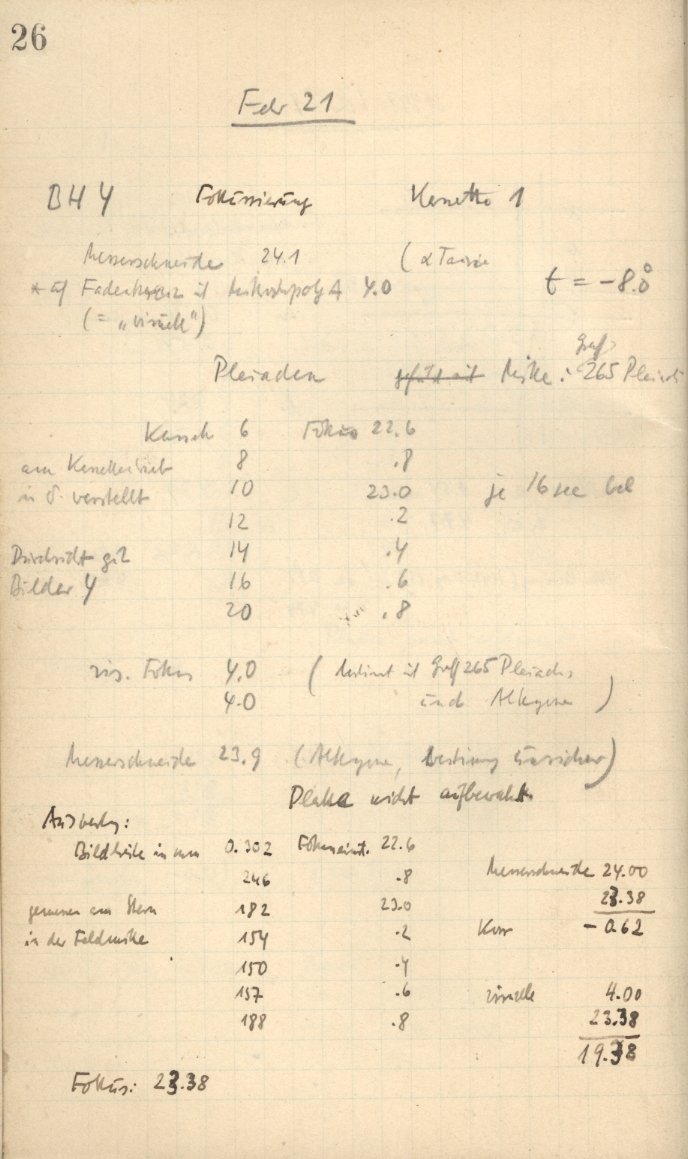 26
Febr 21
BHY Fokussierung Kassette 1
Messerschneide 24.1 (α Tauri
* auf Fadenkreuz 4.0 t = -8.0°
(= „visuell")
Graff
Pleiaden Mitte: 265 Pleiad
6 Fokus 22.6
am
8 .8
in δ verstellt 10 23.0 je 16 sec bel
12 .2
Durchsicht gut 14 .4
Bilder 16 .6
20 .8
vis. Fokus 4.0 (bestimmt mit Graff 265 Pleiad.
4.0 und Alkyone)
Messerschneide 23.9 (Alkyone, Bestimmung unsicher)
Platte nicht aufbewahrt
Auswertung:
Bildbreite in mm 0.302 Fokuseinst. 22.6
246 .8 Messerschneide 24.00
gemessen am Stern 182 23.0 23.38
in der Feldmitte 154 .2 Korr - 0.62
150 .4
157 .6 visuelle 4.00
188 .8 23.38
19.38
Fokus: 23.38